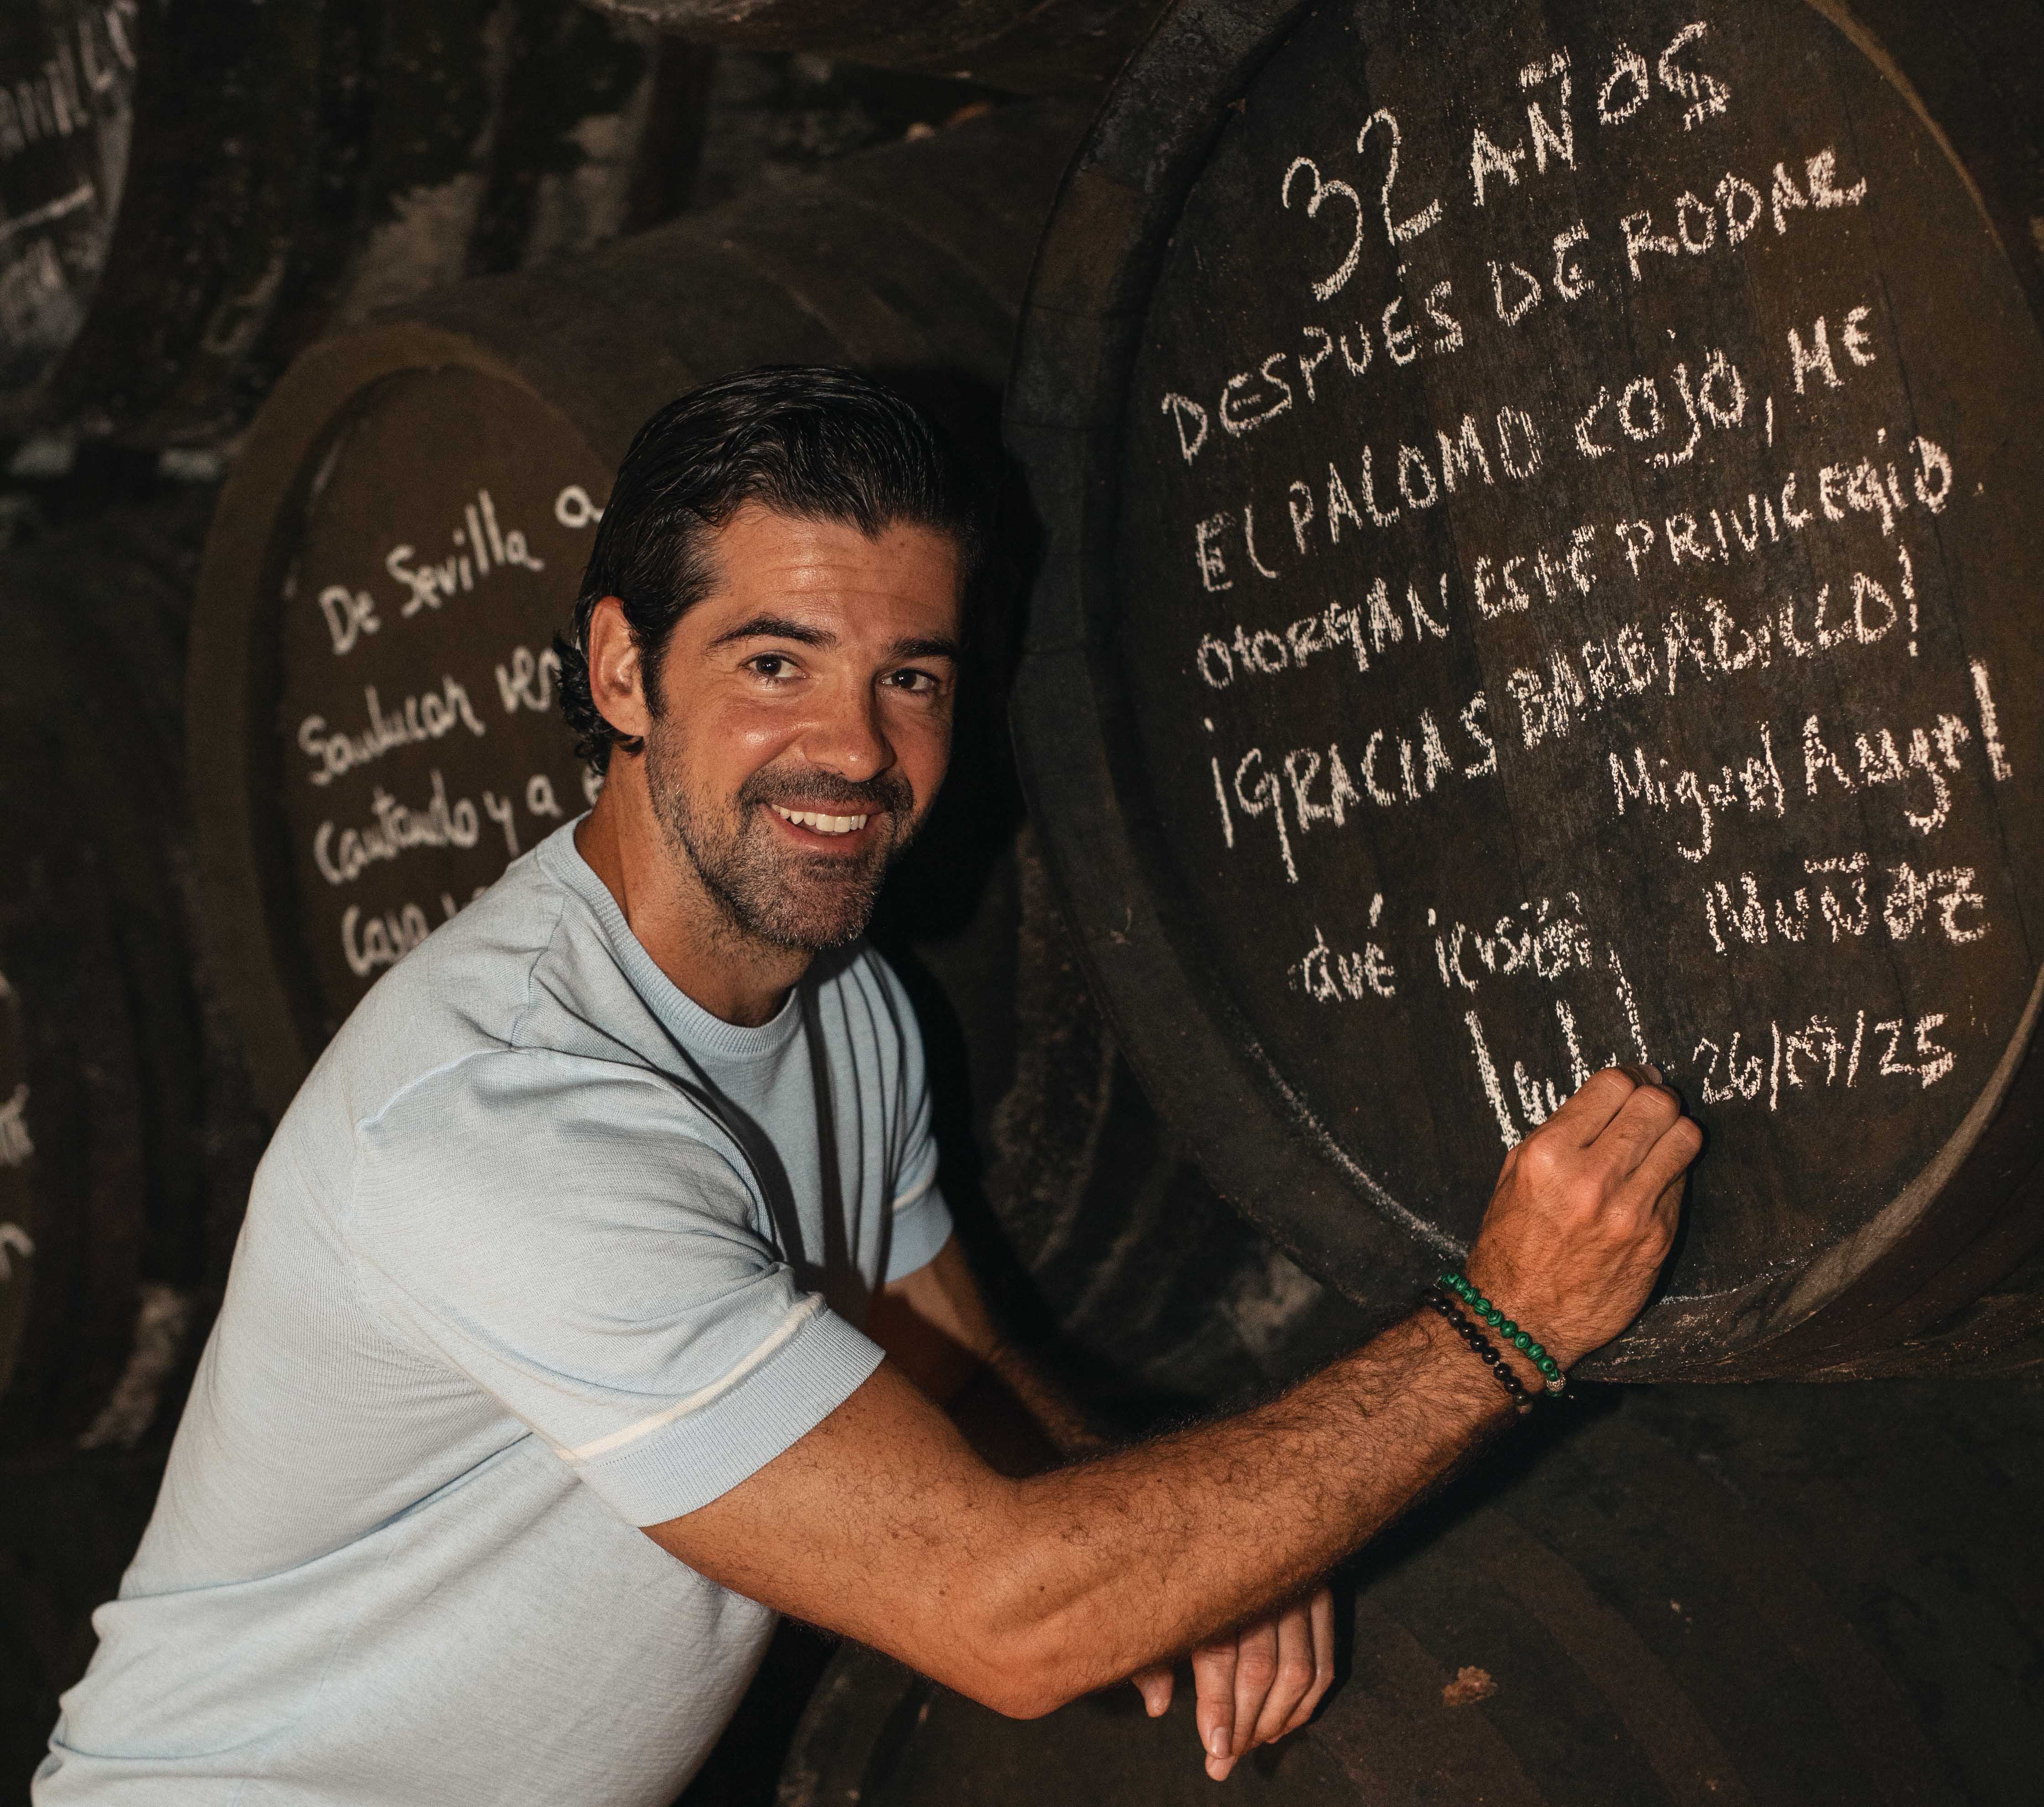 De Sevilla a
Sanlucar
Cantando y a
Casa
32 AÑOS
DESPUÉS DE RODAR
EL PALOMO COJO, ME
OTORGAN ESTE PRIVILEGIO
¡GRACIAS BARBADILLO!
Miguel Ángel
MUÑOZ
QUÉ ILUSIÓN
26/07/25